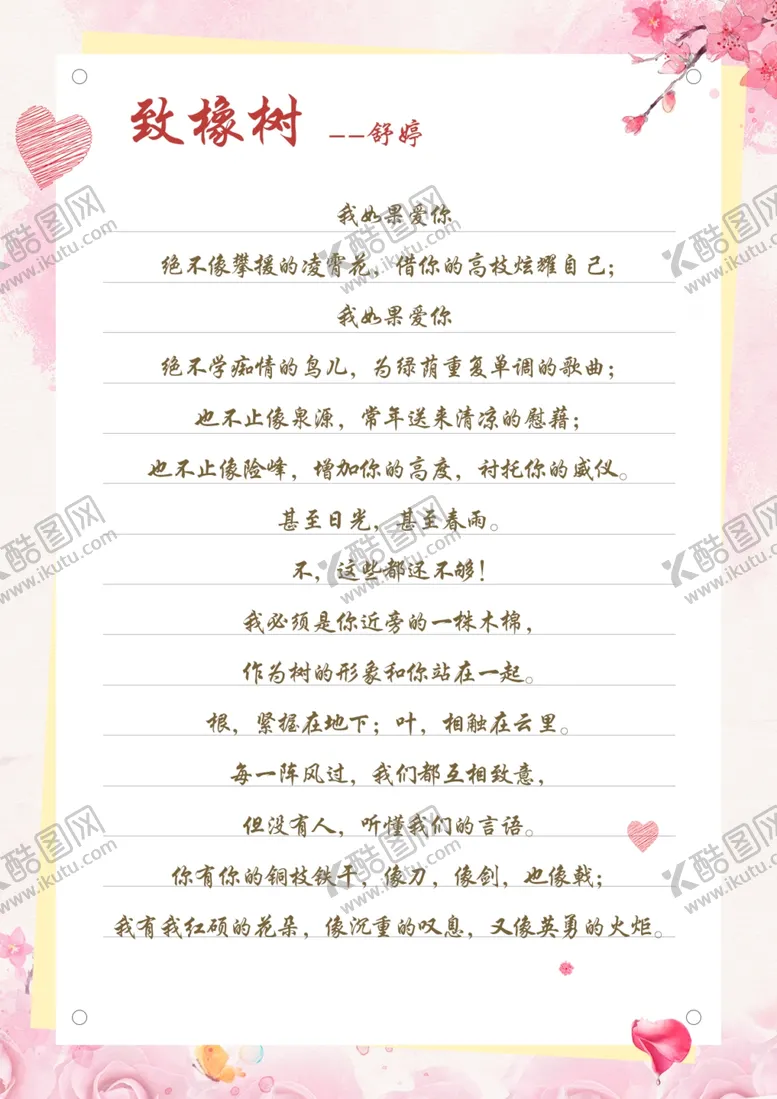 致橡树 ——舒婷
我如果爱你
绝不像攀援的凌霄花，借你的高枝炫耀自己；
我如果爱你
绝不学痴情的鸟儿，为绿荫重复单调的歌曲；
也不止像泉源，常年送来清凉的慰藉；
也不止像险峰，增加你的高度，衬托你的威仪。
甚至日光，甚至春雨。
不，这些都还不够！
我必须是你近旁的一株木棉，
作为树的形象和你站在一起。
根，紧握在地下；叶，相触在云里。
每一阵风过，我们都互相致意，
但没有人，听懂我们的言语。
你有你的铜枝铁干，像刀，像剑，也像戟；
我有我红硕的花朵，像沉重的叹息，又像英勇的火炬。
酷图网
www.ikutu.com
酷图网
www.ikutu.com
酷图网
www.ikutu.com
酷图网
www.ikutu.com
酷图网
www.ikutu.com
酷图网
www.ikutu.com
酷图网
www.ikutu.com
酷图网
www.ikutu.com
酷图网
www.ikutu.com